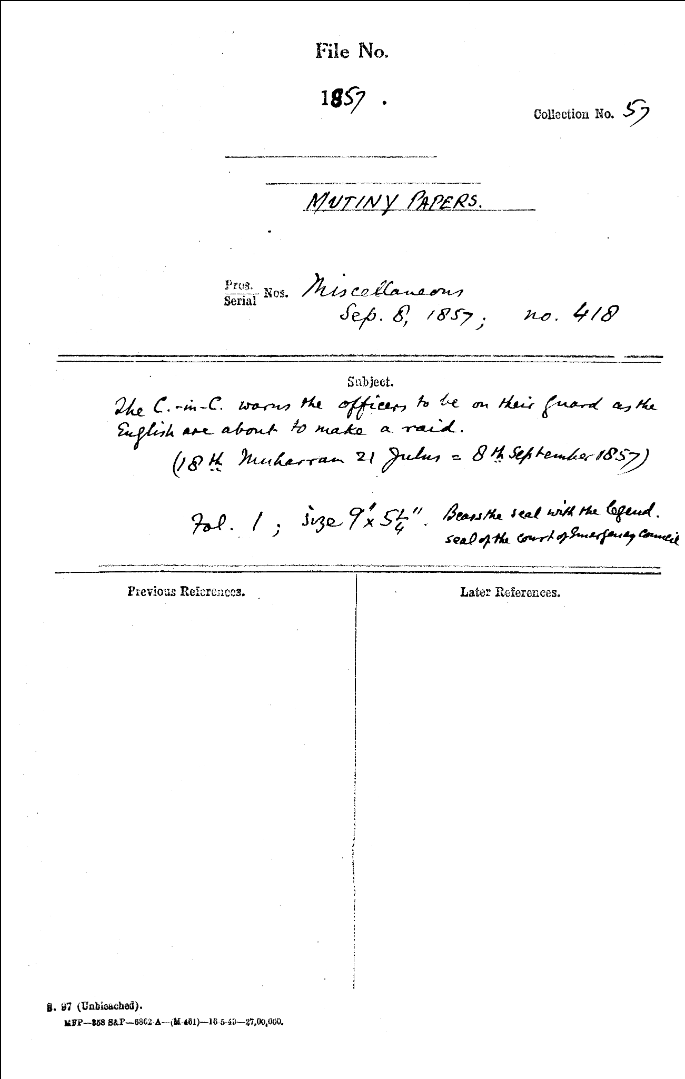 File No.
1857.
Collection No. 57
MUTINY PAPERS.
Pros.
Serial Nos. Miscellaneous
Sep. 8, 1857; no. 418
Subject.
The C.-in-C. warns the officers to be on their guard as the
English are about to make a raid.
(18th Muharram 21 Julus = 8th September 1857)
Fol. 1; size 9" x 5¼". Bears the seal with the legend.
seal of the court of Emergency Council
Previous References.
Later References.
S. 97 (Unbleached).
MFP—858 S&P—6862 A—(M-461)—16-5-40—27,00,000.